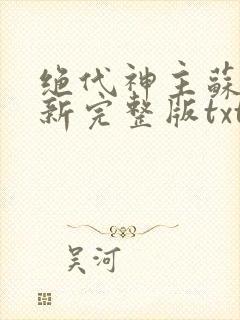 绝代神主蘇
新完整版txt
吴河